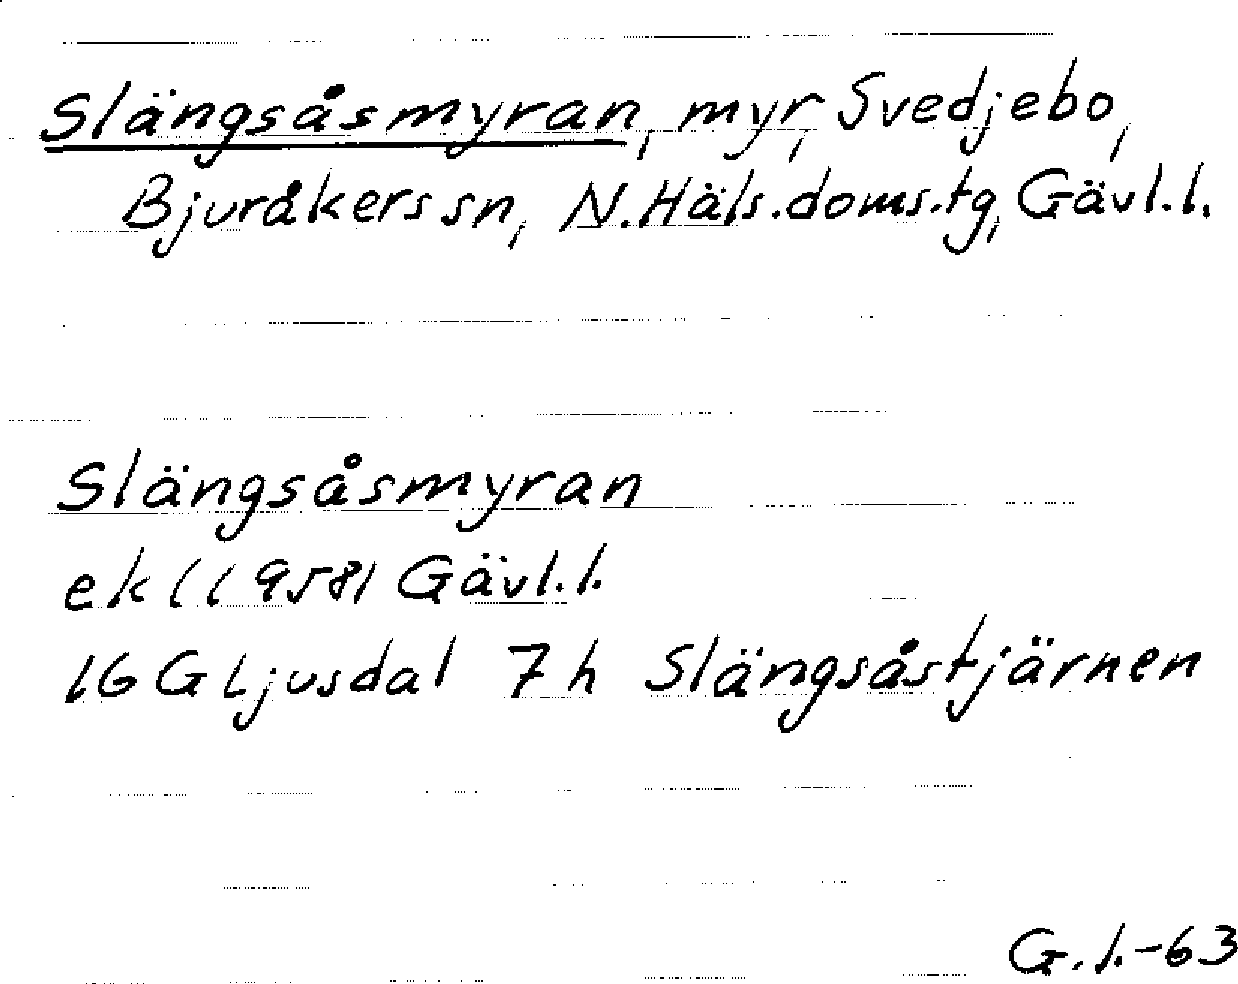 Slängsåsmyran, myr, Svedjebo,
Bjuråkers sn, N. Häls. doms. tg, Gävl. l.
Slängsåsmyran
ek (1958) Gävl. l.
16 G Ljusdal 7 h Slängsåstjärnen
G. l. -63